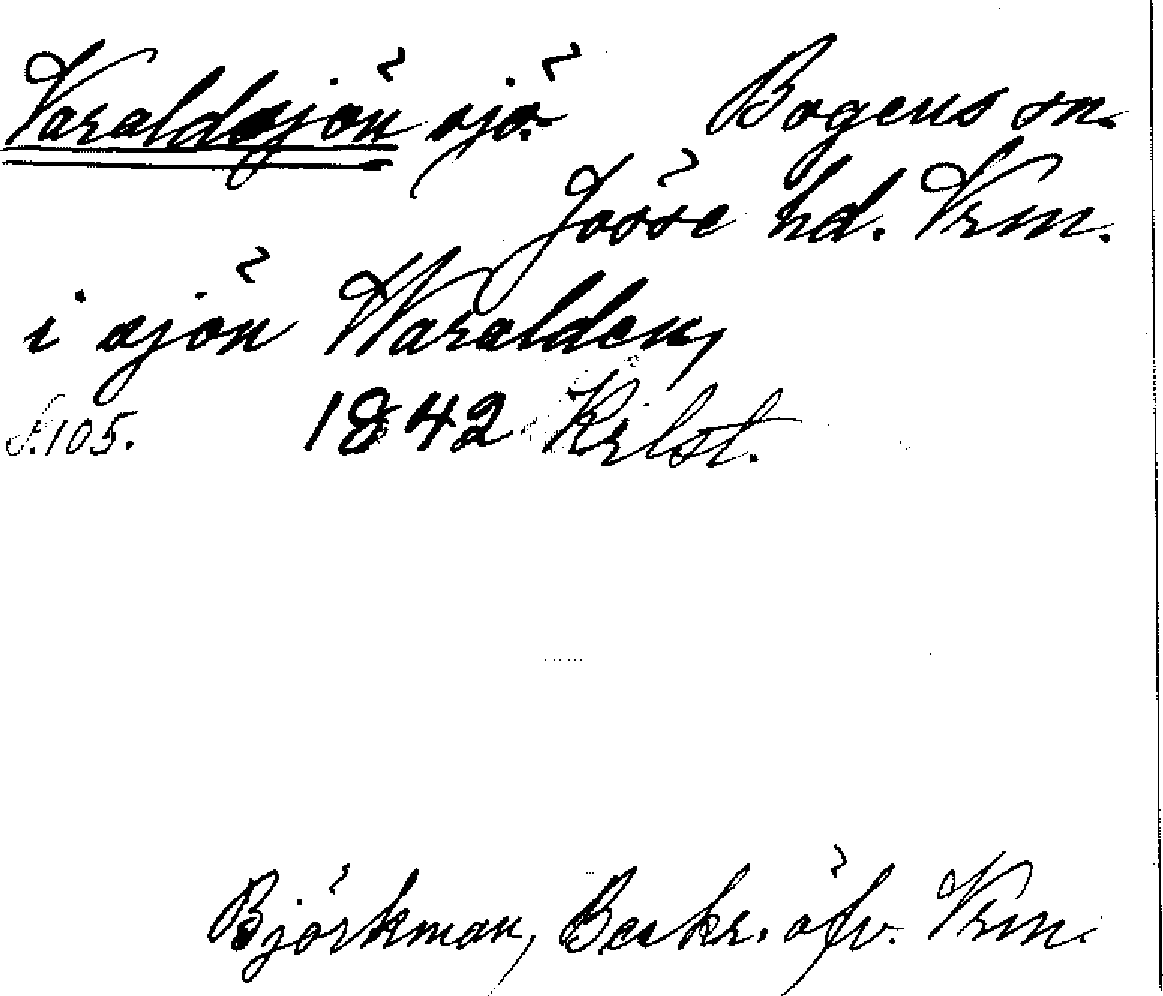 Varaldsjön sjö. Bogens sn.
Jösse hd. Vrm.
i sjön Waralden,
S.105. 1842 Krlst.
Björkman, Beskr. öfv. Vrm.